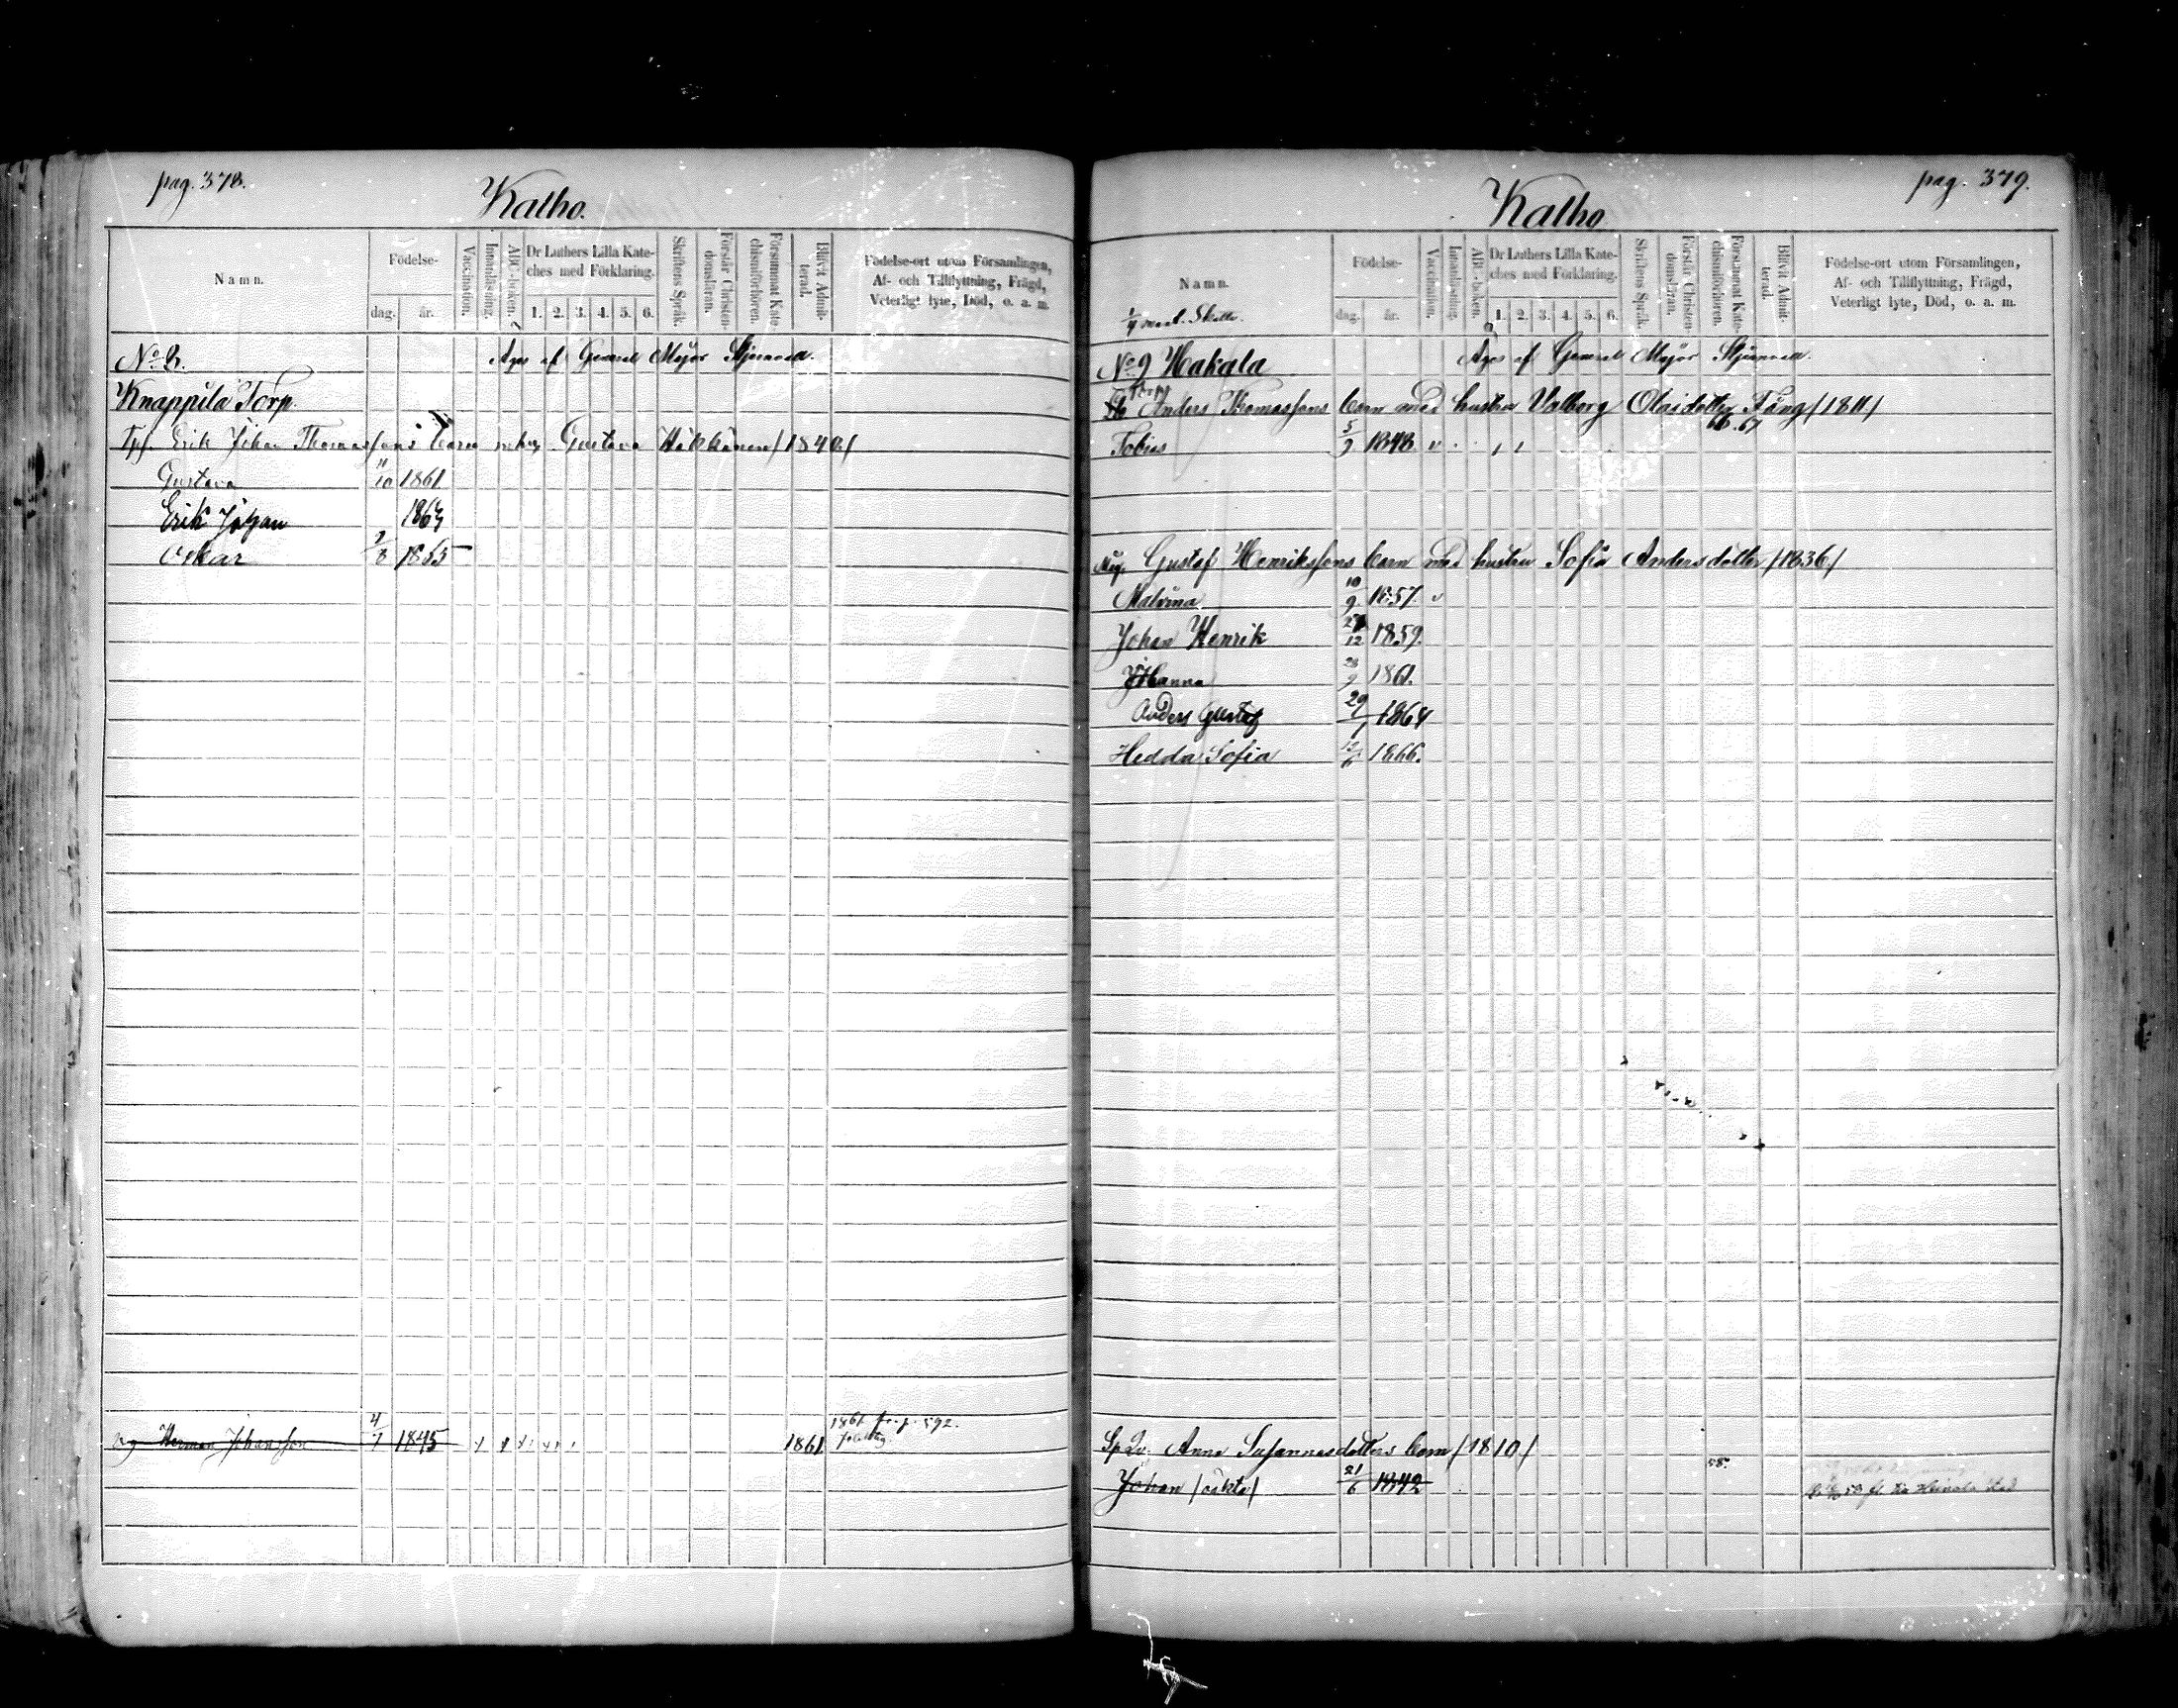 pag. 378.
Kalho.
Namn.
Födelse-
dag. år.
Vaccination.
Innanläsning.
ABC-boken.
Dr Luthers Lilla Kate-
ches med Förklaring.
1. 2. 3. 4. 5. 6.
Skriftens Språk.
Förstår Christen-
domsläran.
Försummat Kate-
chismiförhören.
Blifvit Admit-
terad.
Födelse-ort utom Församlingen,
Af- och Tillflyttning, Frägd,
Veterligt lyte, Död, o. a. m.
No 8. Äges af General Major
Knappila Torp.
Erik Johan Thomassons barn Gustava Häkkänen /1840/
Gustava 11/10 1861
Erik Johan
Oskar
Herman Johansson 4/7 1845 1861 1861 p. 592.
pag. 379.
Kalho
Namn.
Födelse-
dag. år.
Vaccination.
Innanläsning.
ABC-boken.
Dr Luthers Lilla Kate-
ches med Förklaring.
1. 2. 3. 4. 5. 6.
Skriftens Språk.
Förstår Christen-
domsläran.
Försummat Kate-
chismiförhören.
Blifvit Admit-
terad.
Födelse-ort utom Församlingen,
Af- och Tillflyttning, Frägd,
Veterligt lyte, Död, o. a. m.
1/4 mant. Skatte.
No 9 Hakala Äges af General Major
Anders Thomassons barn med hustru Valborg Olaidotter Tång /1811/
66. 67
Tobias 5/9 1848
Gustaf Henrikssons barn med hustru Sofia Andersdotter /1836/
Malvina 10/9 1857.
Johan Henrik 1859.
Johanna 28/9 1861.
Anders Gustaf 29/1 1864
Hedda Sofia 1866.
Anna Susannasdotters barn /1810/
Johan /oäkta/ 21/6 1842 58. Heinola stad